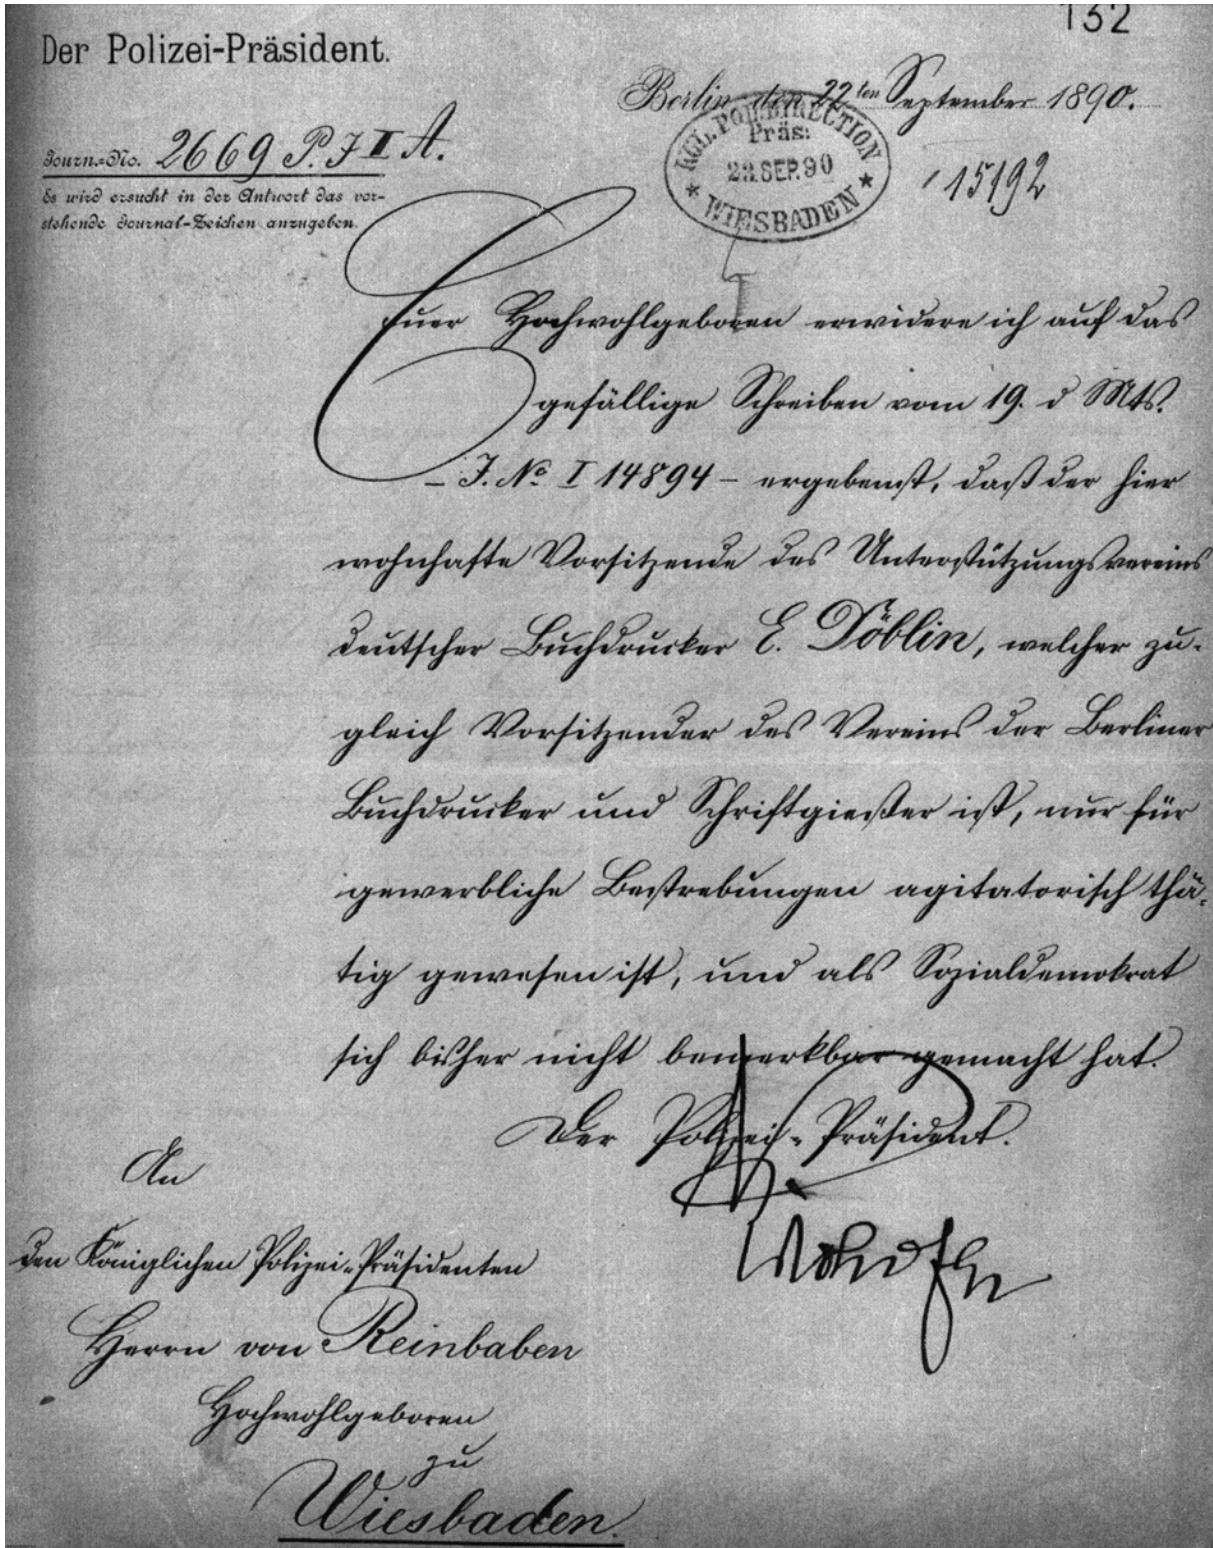 132
Der Polizei-Präsident.
Berlin, den 22ten September 1890.
Journ.-No. 2669 P. J II A.
Es wird ersucht in der Antwort das vor-
stehende Journal-Zeichen anzugeben.
KGL. POL. DIRECTION
Präs:
23. SEP. 90
* WIESBADEN *
15192
Euer Hochwohlgeboren erwidere ich auf das
gefällige Schreiben vom 19. d Mts.
– J. No I 14894 – ergebenst, daß der hier
wohnhafte Vorsitzende des Unterstützungsvereins
deutscher Buchdrucker E. Döblin, welcher zu-
gleich Vorsitzender des Vereins der Berliner
Buchdrucker und Schriftgießer ist, nur für
gewerbliche Bestrebungen agitatorisch thä-
tig gewesen ist, und als Sozialdemokrat
sich bisher nicht bemerkbar gemacht hat.
Der Polizei-Präsident.
An
den Königlichen Polizei-Präsidenten
Herrn von Reinbaben
Hochwohlgeboren
zu
Wiesbaden.